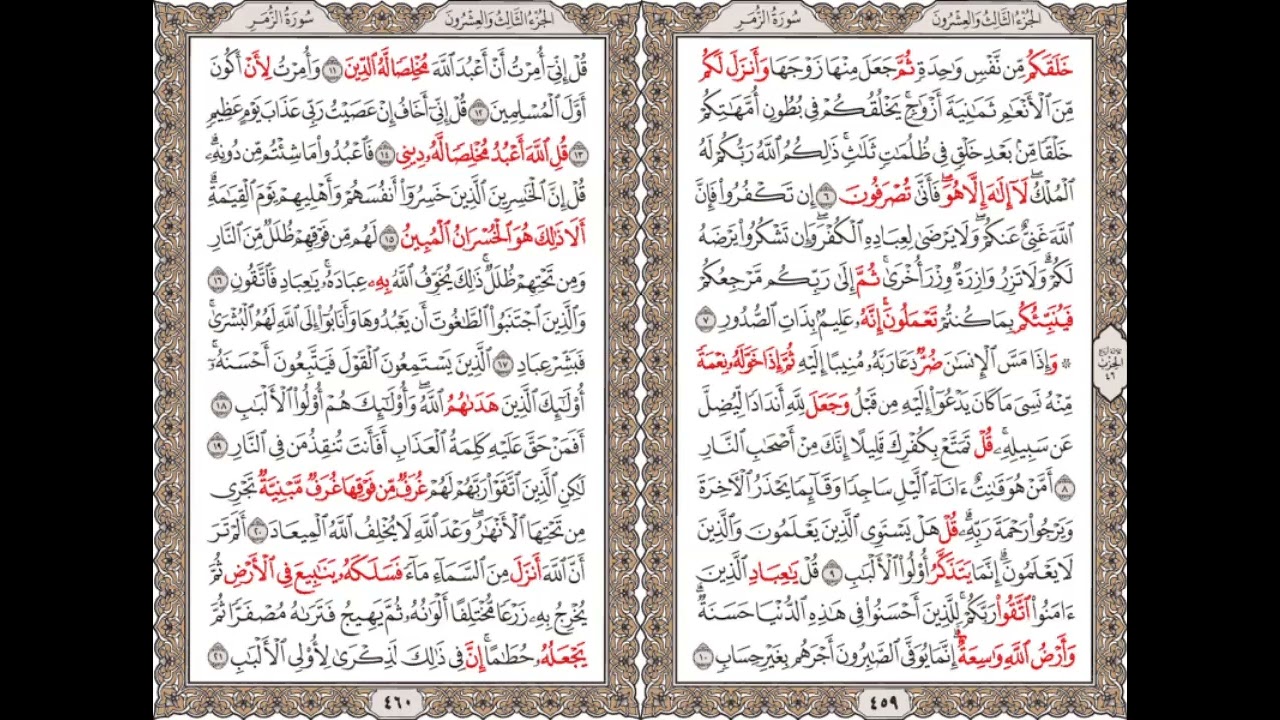 الجزء الثالث والعشرون
سورة الزمر
خَلَقَكُم مِّن نَّفْسٍ وَٰحِدَةٍ ثُمَّ جَعَلَ مِنْهَا زَوْجَهَا وَأَنزَلَ لَكُم
مِّنَ ٱلْأَنْعَٰمِ ثَمَٰنِيَةَ أَزْوَٰجٍ ۚ يَخْلُقُكُمْ فِى بُطُونِ أُمَّهَٰتِكُمْ
خَلْقًا مِّنۢ بَعْدِ خَلْقٍ فِى ظُلُمَٰتٍ ثَلَٰثٍ ۚ ذَٰلِكُمُ ٱللَّهُ رَبُّكُمْ لَهُ
ٱلْمُلْكُ ۖ لَآ إِلَٰهَ إِلَّا هُوَ ۖ فَأَنَّىٰ تُصْرَفُونَ ٦ إِن تَكْفُرُوا۟ فَإِنَّ
ٱللَّهَ غَنِىٌّ عَنكُمْ ۖ وَلَا يَرْضَىٰ لِعِبَادِهِ ٱلْكُفْرَ ۖ وَإِن تَشْكُرُوا۟ يَرْضَهُ
لَكُمْ ۗ وَلَا تَزِرُ وَازِرَةٌ وِزْرَ أُخْرَىٰ ۗ ثُمَّ إِلَىٰ رَبِّكُم مَّرْجِعُكُمْ
فَيُنَبِّئُكُم بِمَا كُنتُمْ تَعْمَلُونَ ۚ إِنَّهُۥ عَلِيمٌۢ بِذَاتِ ٱلصُّدُورِ ٧
۞ وَإِذَا مَسَّ ٱلْإِنسَٰنَ ضُرٌّ دَعَا رَبَّهُۥ مُنِيبًا إِلَيْهِ ثُمَّ إِذَا خَوَّلَهُۥ نِعْمَةً
مِّنْهُ نَسِىَ مَا كَانَ يَدْعُوٓا۟ إِلَيْهِ مِن قَبْلُ وَجَعَلَ لِلَّهِ أَندَادًا لِّيُضِلَّ
عَن سَبِيلِهِۦ ۚ قُلْ تَمَتَّعْ بِكُفْرِكَ قَلِيلًا ۖ إِنَّكَ مِنْ أَصْحَٰبِ ٱلنَّارِ
٨ أَمَّنْ هُوَ قَٰنِتٌ ءَانَآءَ ٱلَّيْلِ سَاجِدًا وَقَآئِمًا يَحْذَرُ ٱلْءَاخِرَةَ
وَيَرْجُوا۟ رَحْمَةَ رَبِّهِۦ ۗ قُلْ هَلْ يَسْتَوِى ٱلَّذِينَ يَعْلَمُونَ وَٱلَّذِينَ
لَا يَعْلَمُونَ ۗ إِنَّمَا يَتَذَكَّرُ أُو۟لُوا۟ ٱلْأَلْبَٰبِ ٩ قُلْ يَٰعِبَادِ ٱلَّذِينَ
ءَامَنُوا۟ ٱتَّقُوا۟ رَبَّكُمْ ۚ لِلَّذِينَ أَحْسَنُوا۟ فِى هَٰذِهِ ٱلدُّنْيَا حَسَنَةٌ ۗ
وَأَرْضُ ٱللَّهِ وَٰسِعَةٌ ۗ إِنَّمَا يُوَفَّى ٱلصَّٰبِرُونَ أَجْرَهُم بِغَيْرِ حِسَابٍ ١٠
ثلاثة أرباع
الحزب
٤٦
٤٥٩
الجزء الثالث والعشرون
سورة الزمر
قُلْ إِنِّىٓ أُمِرْتُ أَنْ أَعْبُدَ ٱللَّهَ مُخْلِصًا لَّهُ ٱلدِّينَ ١١ وَأُمِرْتُ لِأَنْ أَكُونَ
أَوَّلَ ٱلْمُسْلِمِينَ ١٢ قُلْ إِنِّىٓ أَخَافُ إِنْ عَصَيْتُ رَبِّى عَذَابَ يَوْمٍ عَظِيمٍ
١٣ قُلِ ٱللَّهَ أَعْبُدُ مُخْلِصًا لَّهُۥ دِينِى ١٤ فَٱعْبُدُوا۟ مَا شِئْتُم مِّن دُونِهِۦ ۗ
قُلْ إِنَّ ٱلْخَٰسِرِينَ ٱلَّذِينَ خَسِرُوٓا۟ أَنفُسَهُمْ وَأَهْلِيهِمْ يَوْمَ ٱلْقِيَٰمَةِ ۗ
أَلَا ذَٰلِكَ هُوَ ٱلْخُسْرَانُ ٱلْمُبِينُ ١٥ لَهُم مِّن فَوْقِهِمْ ظُلَلٌ مِّنَ ٱلنَّارِ
وَمِن تَحْتِهِمْ ظُلَلٌ ۚ ذَٰلِكَ يُخَوِّفُ ٱللَّهُ بِهِۦ عِبَادَهُۥ ۚ يَٰعِبَادِ فَٱتَّقُونِ ١٦
وَٱلَّذِينَ ٱجْتَنَبُوا۟ ٱلطَّٰغُوتَ أَن يَعْبُدُوهَا وَأَنَابُوٓا۟ إِلَى ٱللَّهِ لَهُمُ ٱلْبُشْرَىٰ ۚ
فَبَشِّرْ عِبَادِ ١٧ ٱلَّذِينَ يَسْتَمِعُونَ ٱلْقَوْلَ فَيَتَّبِعُونَ أَحْسَنَهُۥٓ ۚ
أُو۟لَٰٓئِكَ ٱلَّذِينَ هَدَىٰهُمُ ٱللَّهُ ۖ وَأُو۟لَٰٓئِكَ هُمْ أُو۟لُوا۟ ٱلْأَلْبَٰبِ ١٨
أَفَمَنْ حَقَّ عَلَيْهِ كَلِمَةُ ٱلْعَذَابِ أَفَأَنتَ تُنقِذُ مَن فِى ٱلنَّارِ ١٩
لَٰكِنِ ٱلَّذِينَ ٱتَّقَوْا۟ رَبَّهُمْ لَهُمْ غُرَفٌ مِّن فَوْقِهَا غُرَفٌ مَّبْنِيَّةٌ تَجْرِى
مِن تَحْتِهَا ٱلْأَنْهَٰرُ ۖ وَعْدَ ٱللَّهِ ۖ لَا يُخْلِفُ ٱللَّهُ ٱلْمِيعَادَ ٢٠ أَلَمْ تَرَ
أَنَّ ٱللَّهَ أَنزَلَ مِنَ ٱلسَّمَآءِ مَآءً فَسَلَكَهُۥ يَنَٰبِيعَ فِى ٱلْأَرْضِ ثُمَّ
يُخْرِجُ بِهِۦ زَرْعًا مُّخْتَلِفًا أَلْوَٰنُهُۥ ثُمَّ يَهِيجُ فَتَرَىٰهُ مُصْفَرًّا ثُمَّ
يَجْعَلُهُۥ حُطَٰمًا ۚ إِنَّ فِى ذَٰلِكَ لَذِكْرَىٰ لِأُو۟لِى ٱلْأَلْبَٰبِ ٢١
٤٦٠